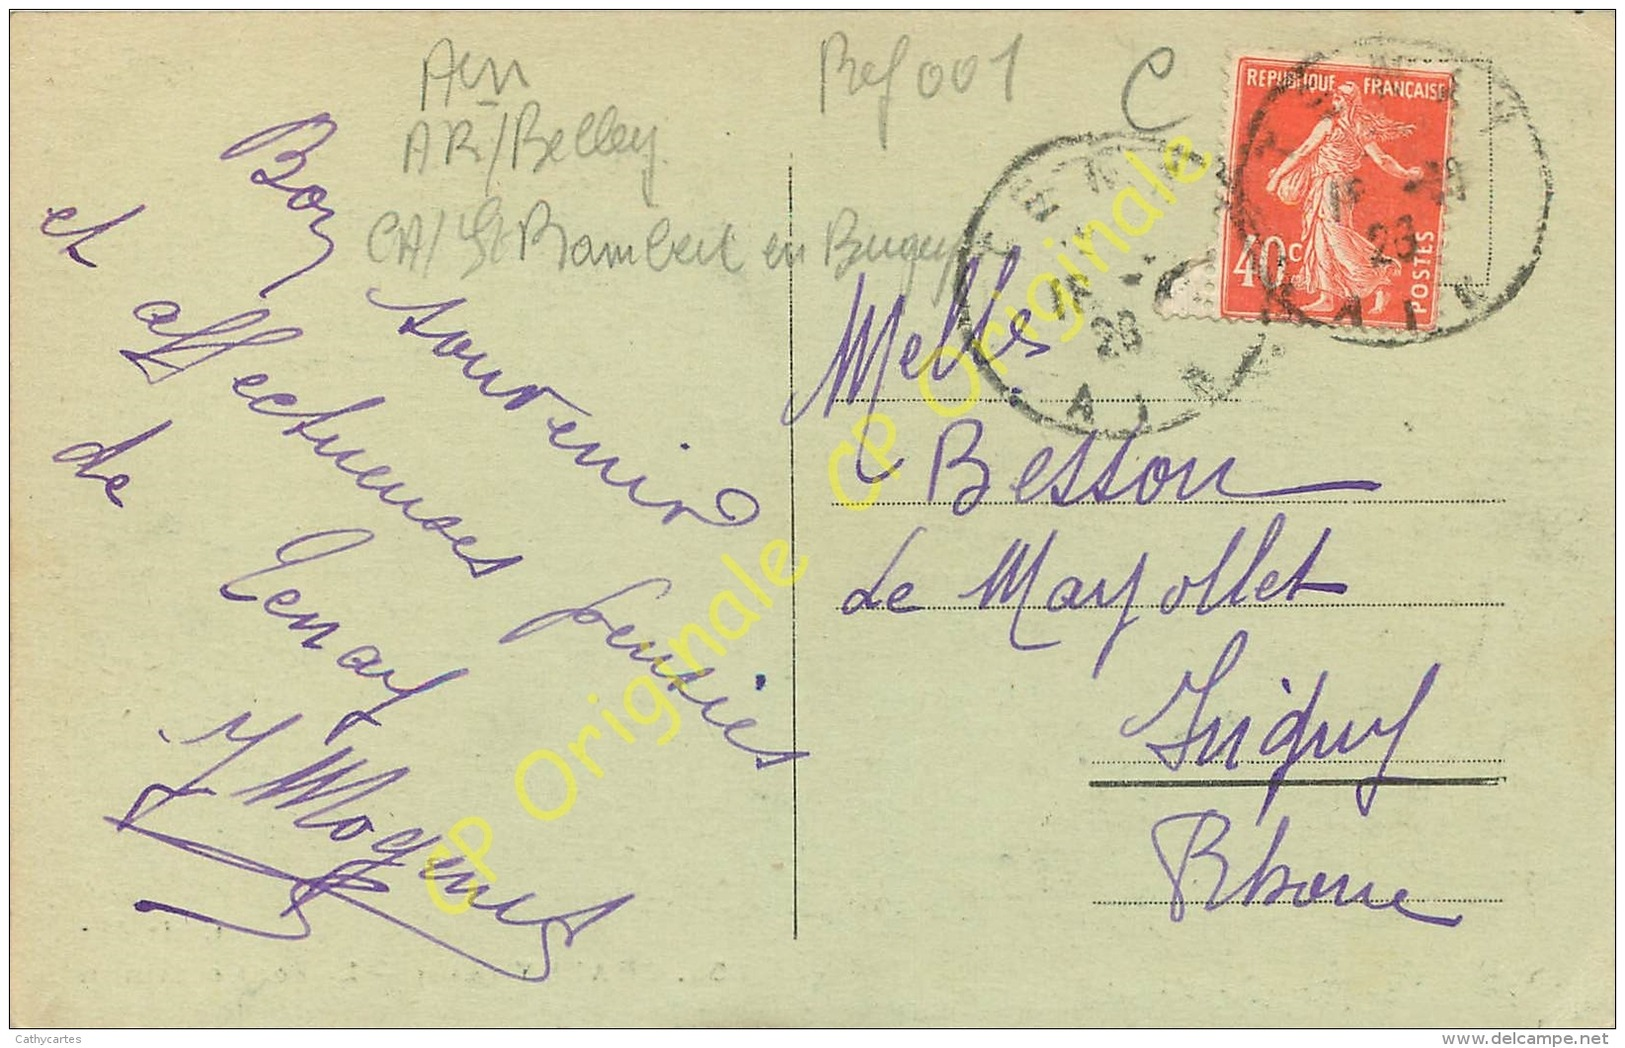 Ain
AR/Belley
CA/St Rambert en Bugey
Ref 001
C
REPUBLIQUE FRANÇAISE
40c
POSTES
TENAY
28
AIN
TENAY
28
AIN
Bon souvenir
et affectueuses pensées
de Tenay
Y Mogenet
Melles
Besson
Le Mayollet
Irigny
Rhone
CP Originale
CP Originale
Cathycartes
www.delcampe.net